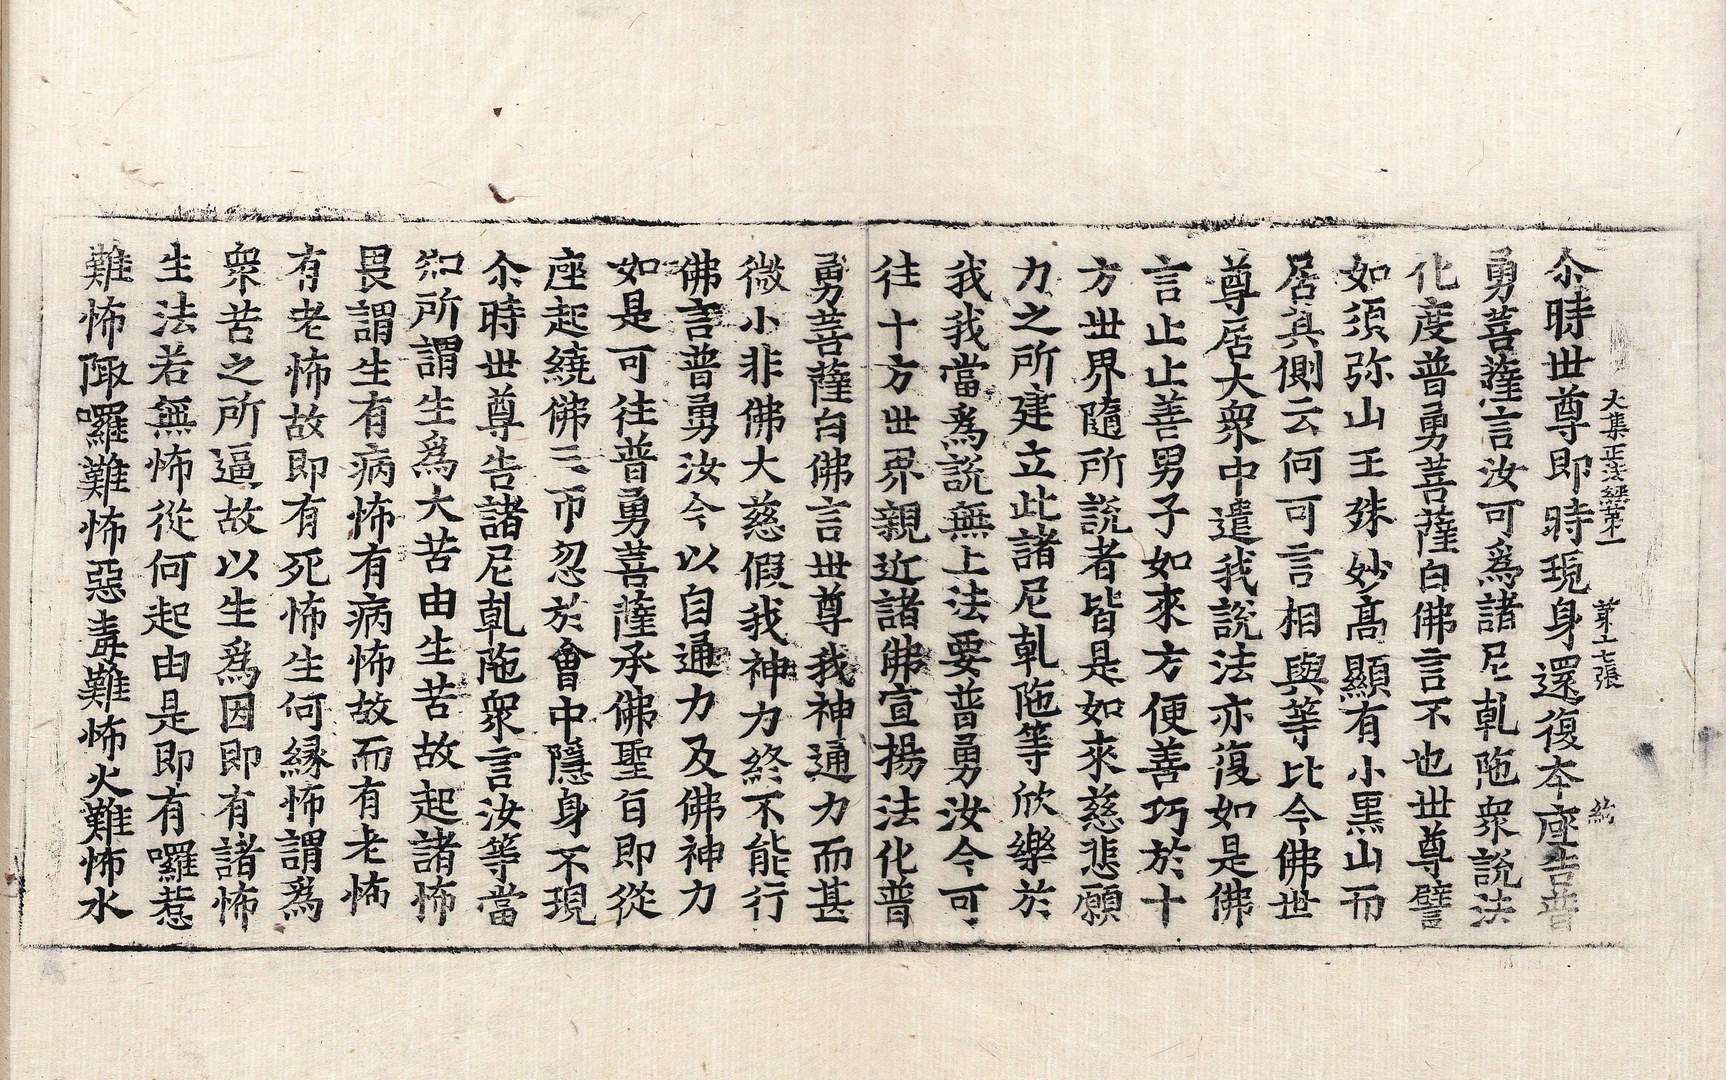 大集正法經第一 第十七張 給
尒時世尊即時現身還復夲座告普
勇菩薩言汝可爲諸尼乹陁衆說法
化度普勇菩薩白佛言不也世尊譬
如須弥山王殊妙髙顯有小黒山而
居其側云何可言相與等比今佛世
尊居大衆中遣我說法亦復如是佛
言止止善男子如來方便善巧於十
方世界隨所說者皆是如來慈悲願
力之所建立此諸尼乹陁等欣樂於
我我當爲說無上法要普勇汝今可
往十方世界親近諸佛宣揚法化普
勇菩薩白佛言世尊我神通力而甚
微小非佛大慈假我神力終不能行
佛言普勇汝今以自通力及佛神力
如是可往普勇菩薩承佛聖旨即從
座起繞佛三帀忽於會中隱身不現
尒時世尊告諸尼乹陁衆言汝等當
知所謂生爲大苦由生苦故起諸怖
畏謂生有病怖有病怖故而有老怖
有老怖故即有死怖生何縁怖謂爲
衆苦之所逼故以生爲因即有諸怖
生法若無怖從何起由是即有囉惹
難怖陬囉難怖惡毒難怖火難怖水